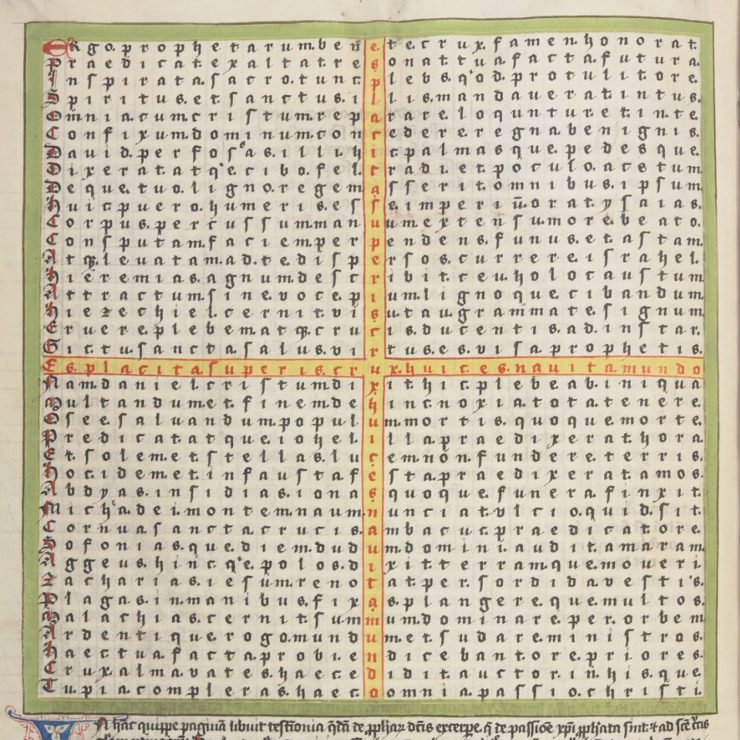 ERgo.prophetarum.beñ e te.crux.famen.honorat.
Praedicat.exaltat.resonat.tua.facta.futura
Inspirata.sacro.tunc.plebs.q'od.protulit.ore.
Spiritus.et.sanctus.illis.mandauerat.intus.
Omnia.cum.cristum.reparare.loquntur.et.in te.
Confixum.dominum.concedere.regna.benignis.
Dauid.perfosas.illi hic.palmasque.pedesque.
Dixerat.atq'e.cibo.fel tradi.et.poculo.acetum
Deque.tuo.ligno.regem asserit.omnibus.ipsum
huic.puero.humeris.esse.imperiū.orat.ysaias.
Corpus.percussum.manuum.extensum.ore.beato.
Consputam.faciem.perpendens.funus.et.astam.
Atq;.leuatam.ad.te.dispersos.currere.israhel.
hieremias.agnum.describit.ceu.holocaustum
Attractum.sine.voce.pium.lignoque.cibandum
hiezechiel.cernit.visu tau.grammate.signum
Eruere.plebem.atq;.crucis.ducentis.ad.instar.
Gictu.sancta.salus.virtus.es.visa.prophetis.
Es.placita.superis.crux.huic.es.nauita.mundo
Nam daniel.cristum.dixit.hic.plebe ab iniqua
Aultandum et.finem de hinc.noxia.tota.tenere.
Osee.saluandum.populum.mortis.quoque.morte.
Predicat.atque.iohel.illa.praedixerat.hora
Et.solem et.stellas.lucem.non.fundere.terris.
hoc.idem et.infausta festa.praedixerat.amos.
Abdyas.insidias.ionas quoque.funera.finxit.
Micha.dei.montem.naum nunciat.vlcio.quid.sit.
Cornua.sancta.crucis.ambacuc.praedicat.ore.
Sofonias.que.diem.dudum.domini.audit.amaram.
Aggeus.hinc.q'e.polos.dixit.terramque.moueri.
Zacharias.iesum.renotat.per.sordida.vestis.
Plagas.in manibus.fixas.plangere.que.multos.
Malachias.cernit.summum.dominare.per.orbem
Ardentique.rogo.mundum.et.sudare.ministros.
haec tua.facta.prob.i.en dicebant.ore.priores.
Crux.alma.vates.haec.edidit.auctor.in.hisque.
Tu.pia.compleras.haec.omnia.passio.christi.
IN hac quippe pagina libuit testionia